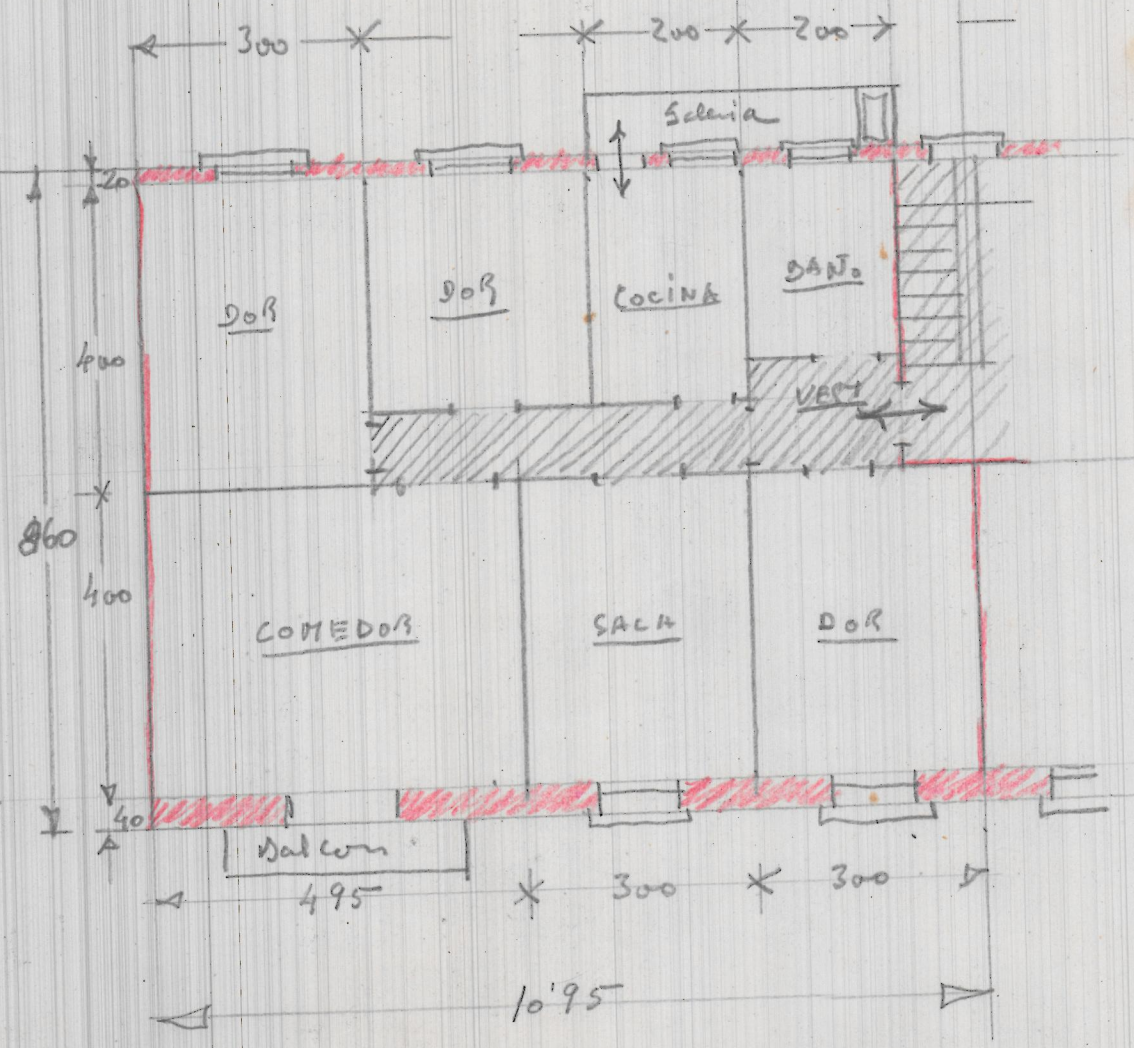 300 200 200
Soleria
20
DOR DOR COCINA BAÑO
400
VEST
860
400
COMEDOR SALA DOR
40
Balcon
495 300 300
10'95